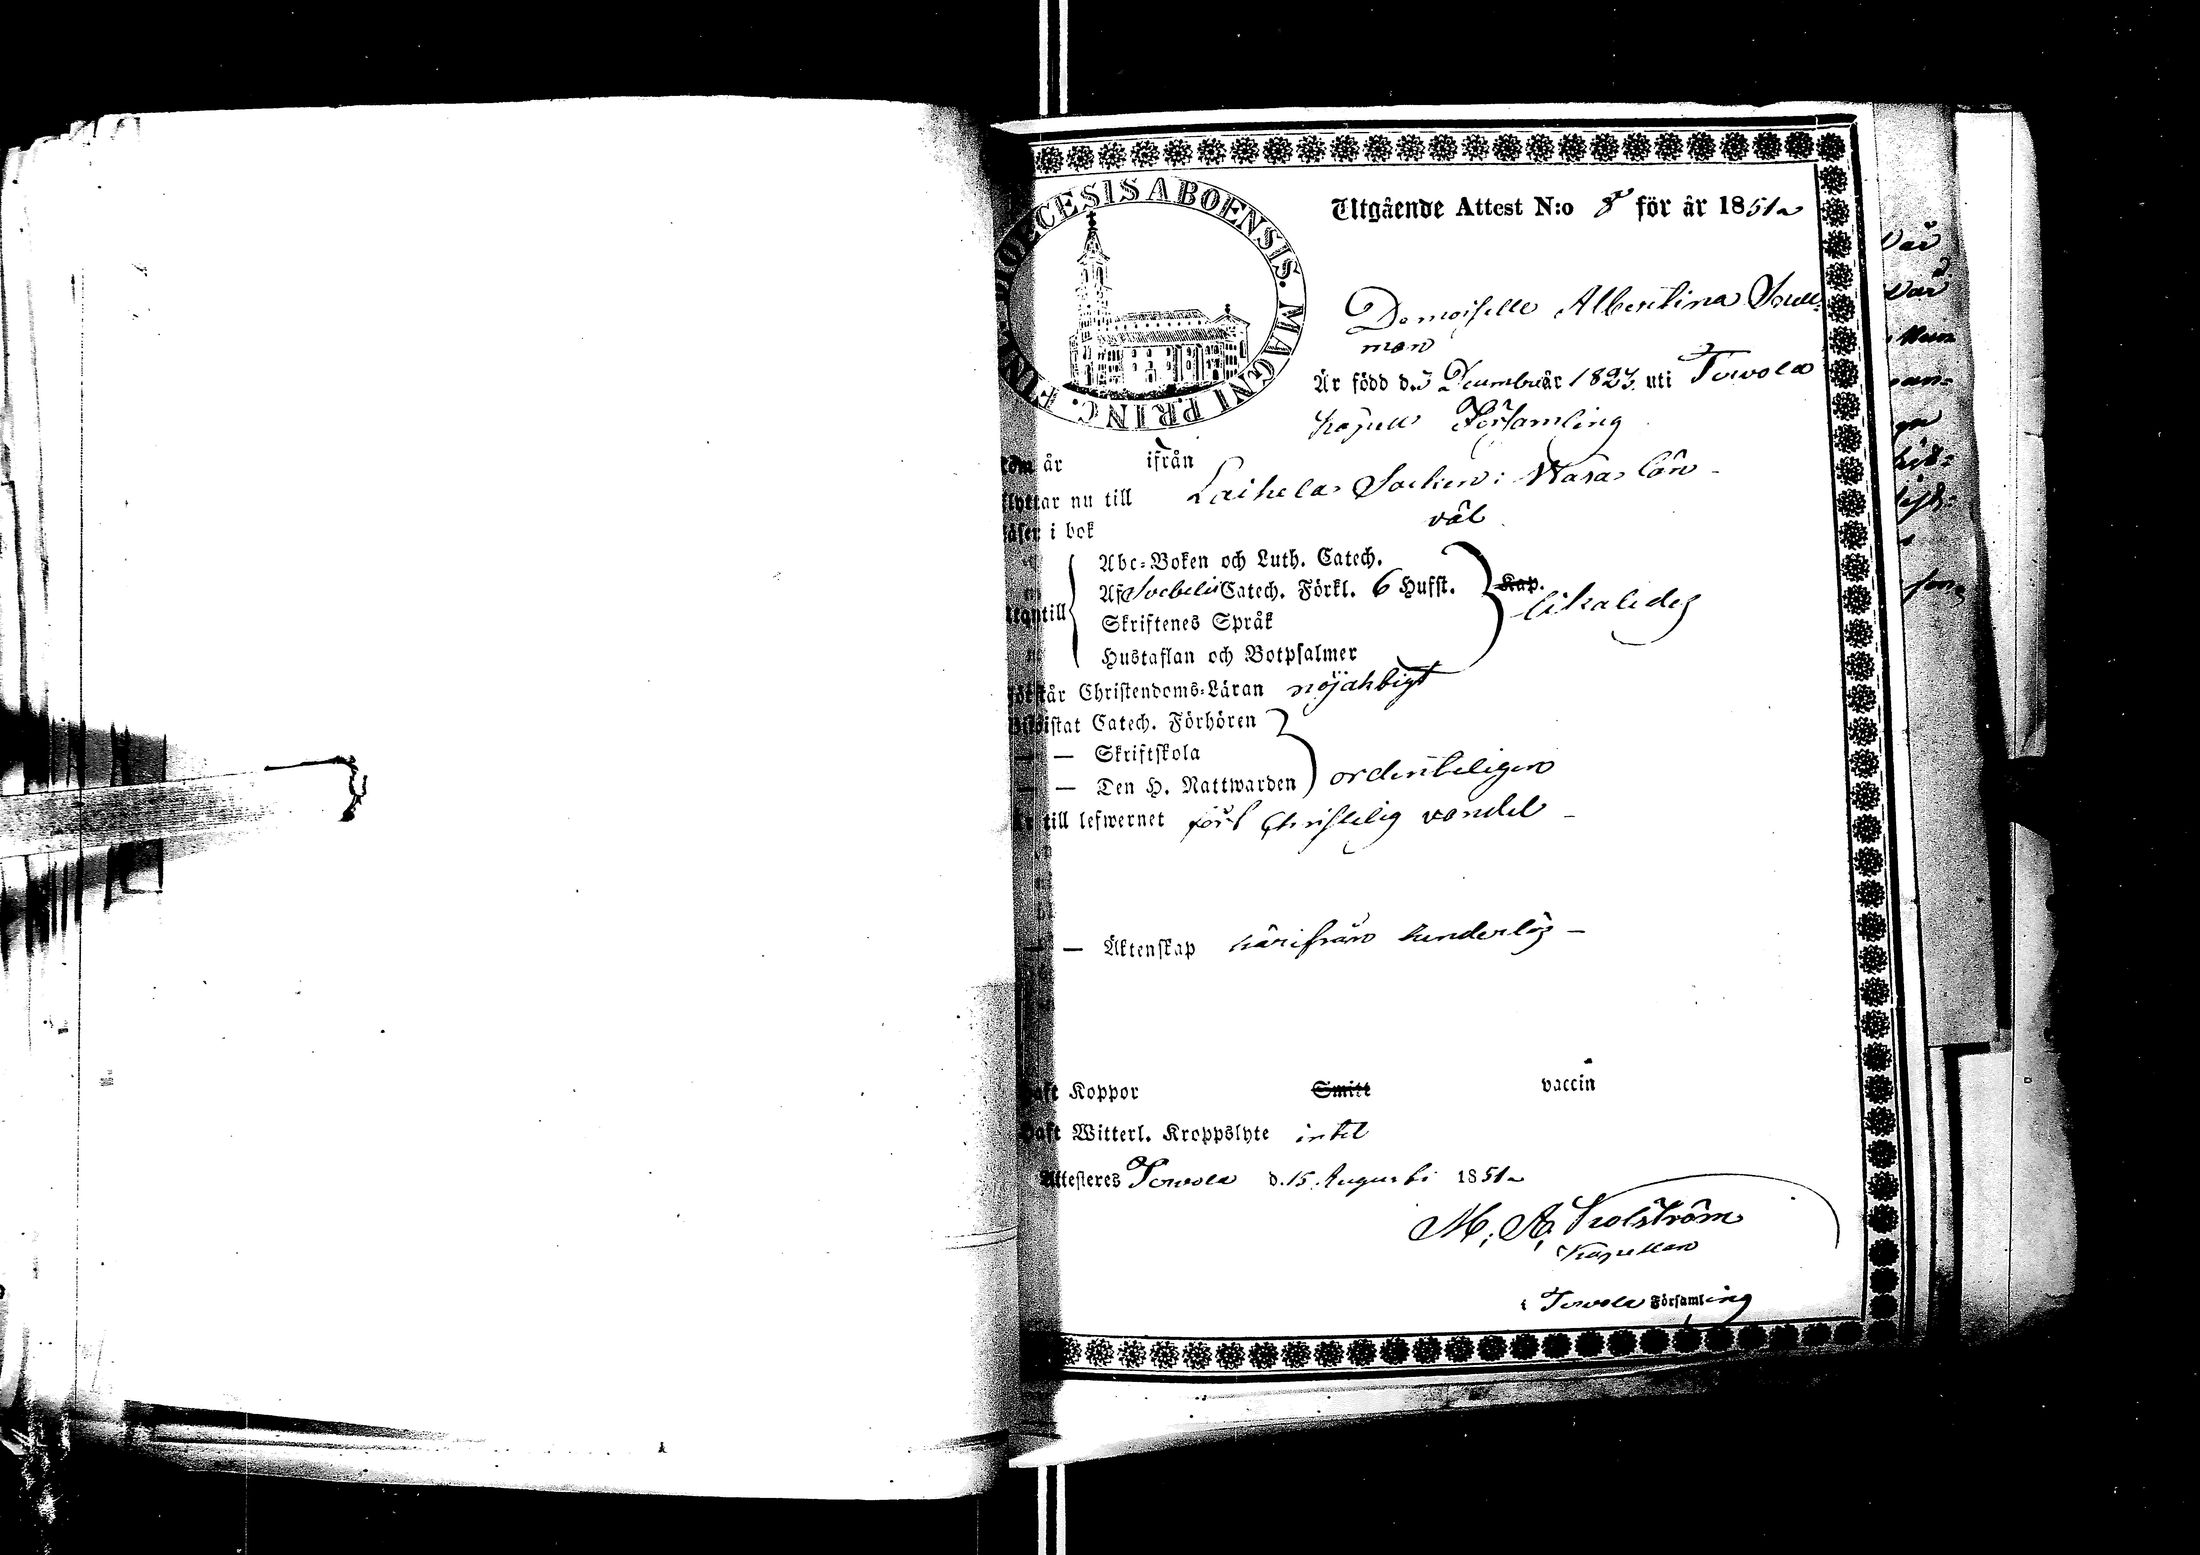 DIOECESIS ABOENSIS. MAGNI PRINC. FINL.
Utgående Attest N:o 8 för år 1851
Demoiselle Albertina
man
Är född d. 3 December år 1823 uti Towola
Kapell Församling
kom år ifrån
flyttar nu till Laihela Socken i Wasa Län
läser i bok väl
Abc-Boken och Luth. Catech.
Af Svebelii Catech. Förkl. 6 Hufst. Kap. likaledes
utantill
Skriftenes Språk
Hustaflan och Botpsalmer
förstår Christendoms-Läran nöjaktigt
Bewistat Catech. Förhören
— — Skriftskola
— — Den H. Nattwarden ordenteligen
Är till lefwernet fört Christelig vandel
— — Äktenskap härifrån hinderlös
Haft Koppor Smitt vaccin
Haft Witterl. Kroppslyte intet
Attesteres Towola d. 15 Augusti 1851
M. A.
Kapellan
i Towola Församling